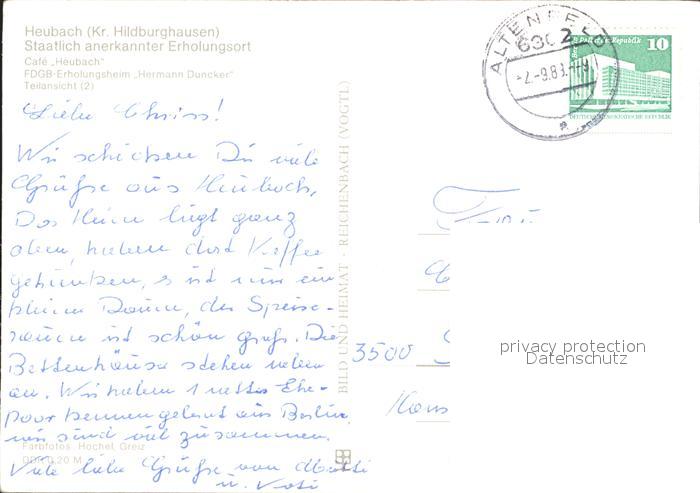 Heubach (Kr. Hildburghausen)
Staatlich anerkannter Erholungsort
Café „Heubach"
FDGB-Erholungsheim „Hermann Duncker"
Teilansicht (2)
Liebe Chriss!
Wir schicken Dir viele
Grüße aus Heubach.
Das Heim liegt ganz
oben, haben dort Kaffee
getrunken, es ist nur ein
kleiner Raum, der Speise-
raum ist schön groß. Die
Bettenhäuser stehen neben
an. Wir haben 1 nettes Ehe-
paar kennengelernt aus Berlin,
wir sind viel zusammen.
Viele liebe Grüße von
u. Vati
Farbfotos: Höchel, Greiz
DDR 0,20 M
BILD UND HEIMAT · REICHENBACH (VOGTL)
ALTENFELD
6302
-2.-9.83.
Palast der Republik
10
DEUTSCHE DEMOKRATISCHE REPUBLIK
Frau
3500
Hans
privacy protection
Datenschutz